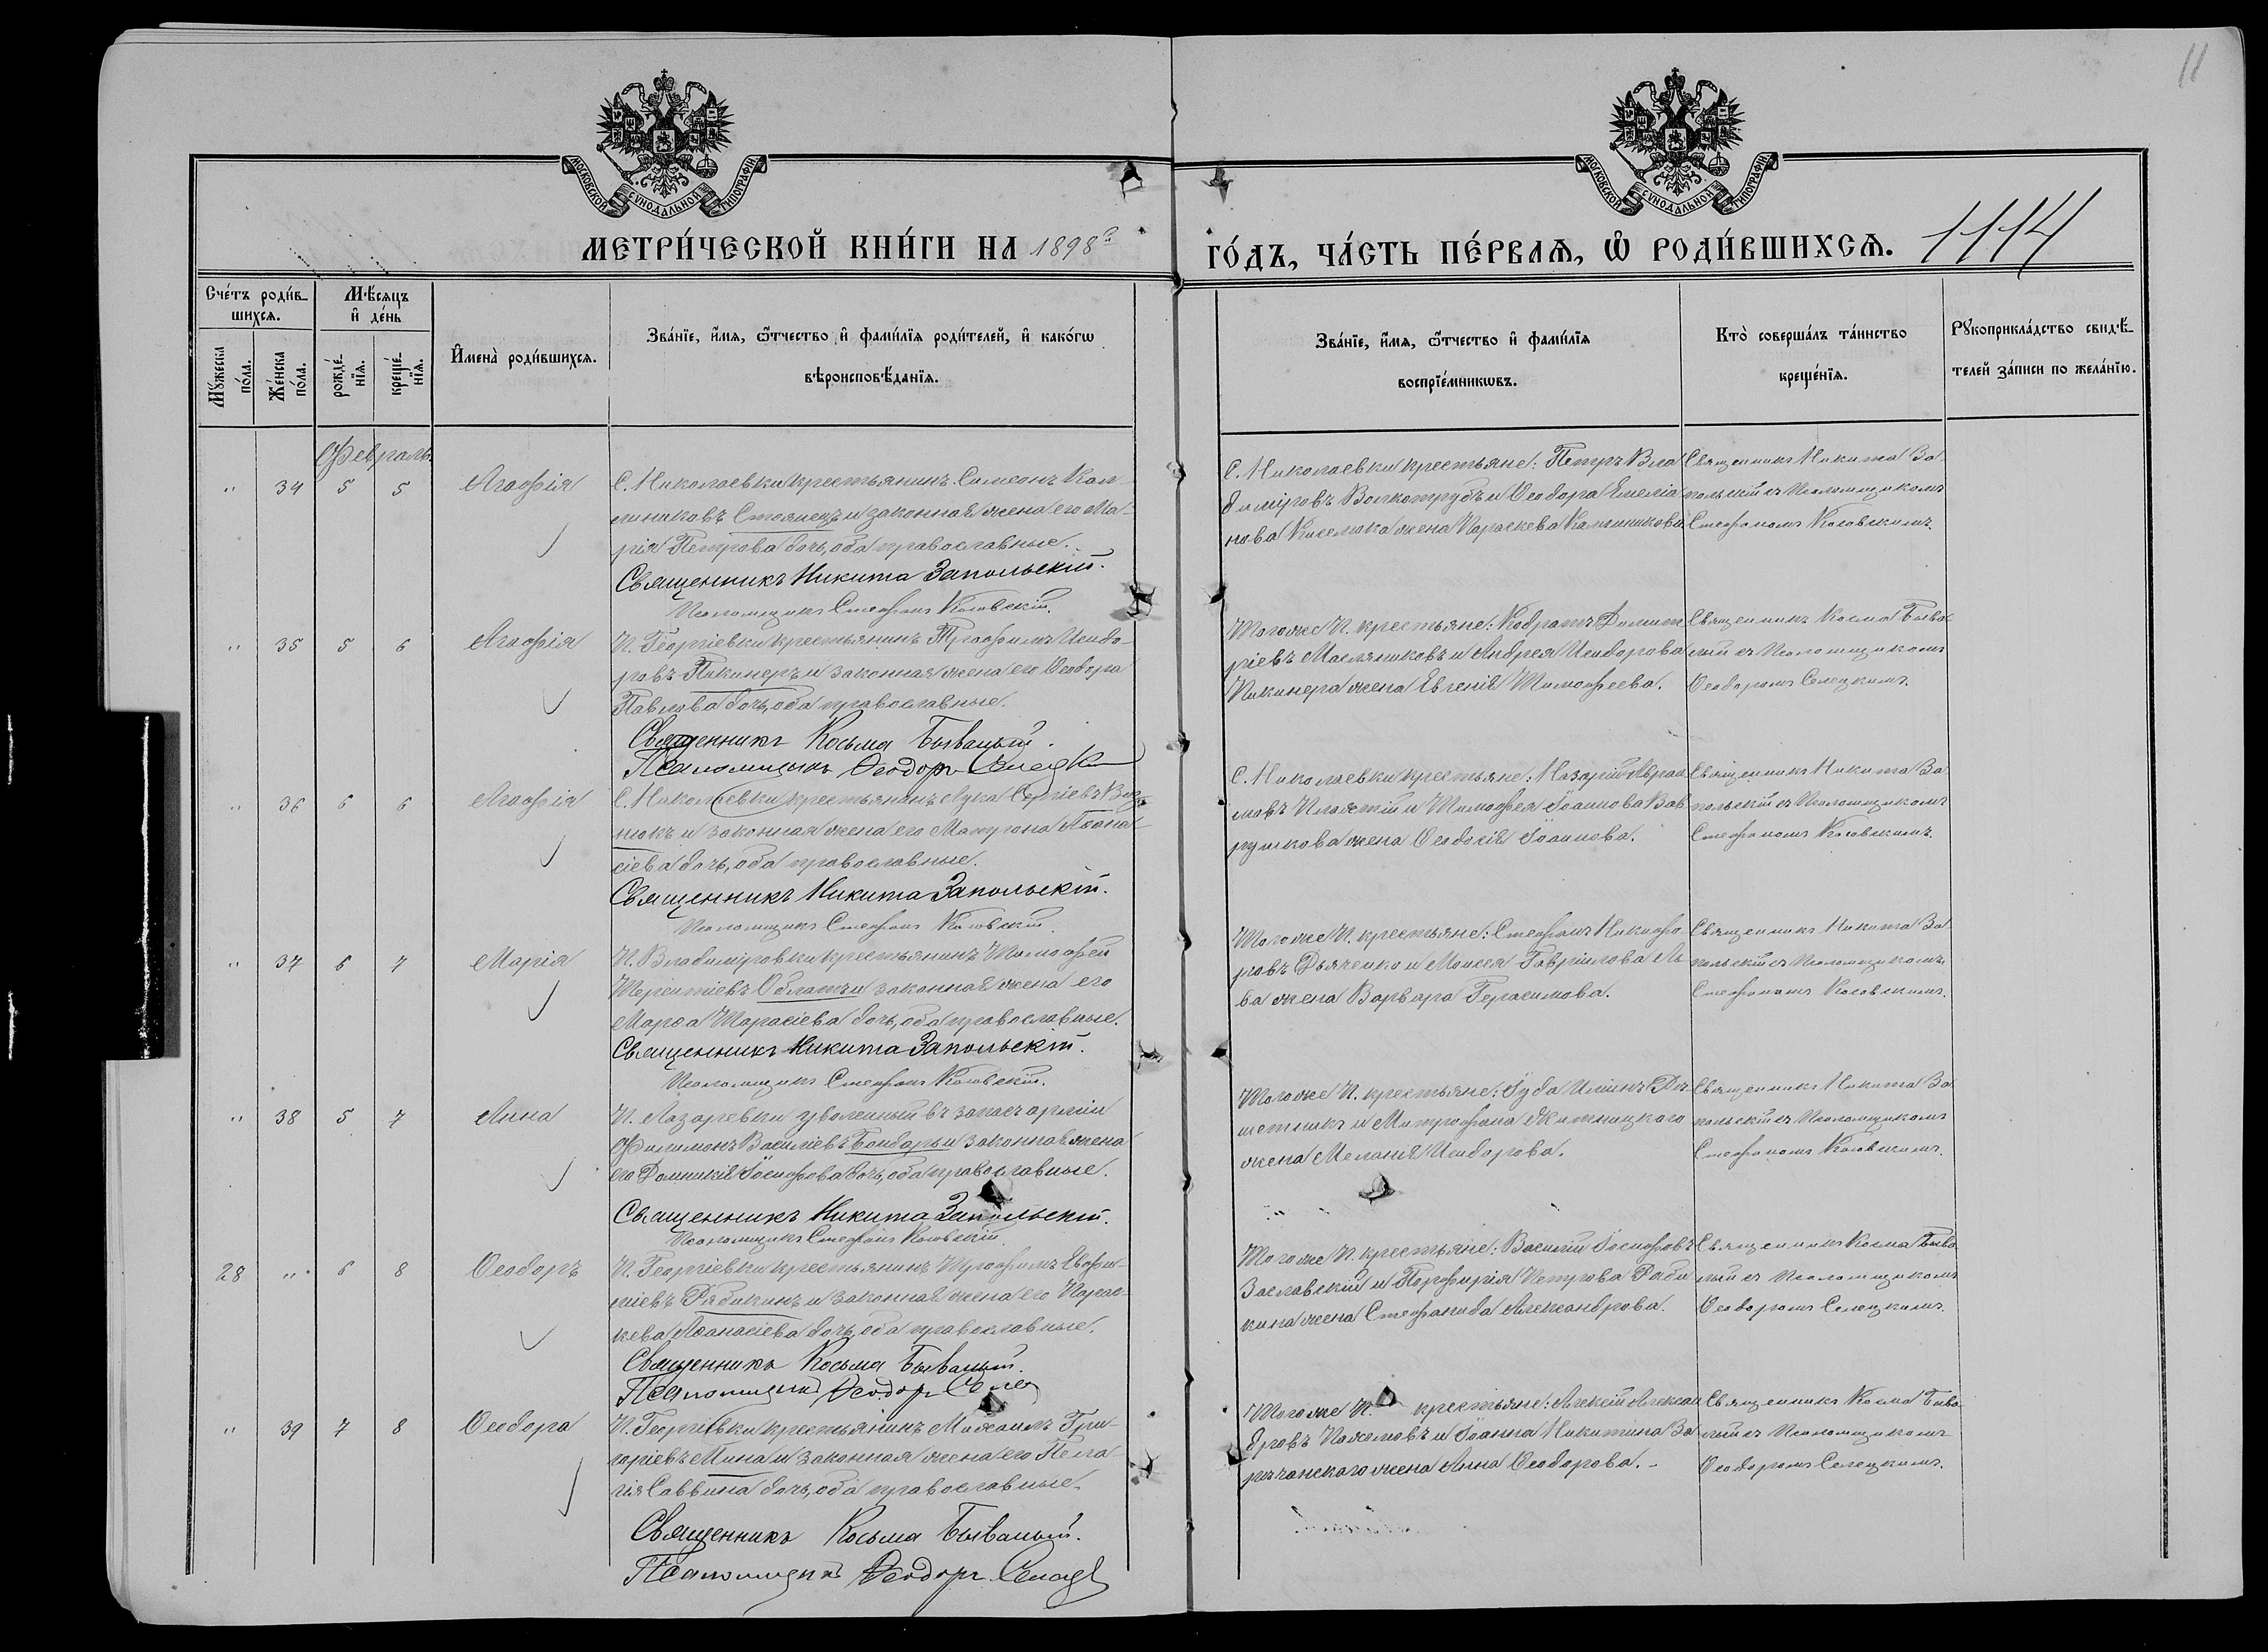 11
МОСКОВСКОЙ СѴНОДАЛЬНОЙ ТИПОГРАФІИ
МОСКОВСКОЙ СѴНОДАЛЬНОЙ ТИПОГРАФІИ
МЕТРИ́ЧЕСКОЙ КНИ́ГИ НА 1898й
ГО́ДЪ, ЧА́СТЬ ПЕ́РВАѦ, Ѽ РОДИ́ВШИХСѦ. 1114
Сче́тъ роди́в-
шихсѧ.
Мѣ́сѧцъ
и҆ де́нь
Мꙋ́жеска по́ла.
Же́нска по́ла.
рожде́нїѧ.
креще́нїѧ.
И҆мена̀ роди́вшихсѧ.
Зва́нїе, и҆́мѧ, ѻ҆́тчество и҆ фами́лїѧ роди́телей, и҆ како́гѡ
вѣроисповѣ́данїѧ.
Зва́нїе, и҆́мѧ, ѻ҆́тчество и҆ фами́лїѧ
воспрїе́мникѡвъ.
Кто̀ соверша́лъ та́инство
креще́нїѧ.
Рꙋкоприкла́дство свидѣ́-
телей за́писи по жела́нїю.
Февраль.
" 34 5 5 Агафія
С. Николаевки крестьянинъ Симеонъ Кал-
линиковъ Стоянецъ и законная жена его Ма-
рія Петрова дочь, оба православные.
Священникъ Никита Запольскій.
Псаломщикъ Стефанъ Косовскій.
С. Николаевки крестьяне: Петръ Вла
диміровъ Волкотрубъ и Ѳеодора Емеліа
нова Киселюка жена Параскева Каллиникова.
Священникъ Никита За
польскій съ Псаломщикомъ
Стефаномъ Косовскимъ.
" 35 5 6 Агафія
П. Георгіевки крестьянинъ Трофимъ Исидо-
ровъ Пикинеръ и законная жена его Ѳеодора
Павлова дочь, оба православные.
Священникъ Косьма Бывалый.
Псаломщикъ Ѳеодоръ Селецк
Того же П. крестьяне: Кодратъ Димит
ріевъ Масляниковъ и Андрея Исидорова
Пикинера жена Евгенія Тимофеева.
Священникъ Косма Быва
лый съ Псаломщикомъ
Ѳеодоромъ Селецкимъ.
" 36 6 6 Агафія
С. Николаевки крестьянинъ Лука Сергіевъ
нюкъ и законная жена его Матрона Аѳана-
сіева дочь, оба православные.
Священникъ Никита Запольскій.
Псаломщикъ Стефанъ Косовскій.
С. Николаевки крестьяне: Назарій Авраа
мовъ и Тимофея Іоаннова Вав
рушкова жена Ѳеодосія Іоаннова.
Священникъ Никита За
польскій съ Псаломщикомъ
Стефаномъ Косовскимъ.
" 37 6 7 Марія
П. Владиміровки крестьянинъ Тимофей
Терентіевъ Облатъ и законная жена его
Марѳа Тарасіева дочь, оба православные.
Священникъ Никита Запольскій.
Псаломщикъ Стефанъ Косовскій.
Того же П. крестьяне: Стефанъ Никифо-
ровъ Дьяченко и Моисея Гавріилова Ль
ва жена Варвара Герасимова.
Священникъ Никита За
польскій съ Псаломщикомъ
Стефаномъ Косовскимъ.
" 38 5 7 Анна
П. Лазаревки уволенный въ запасъ арміи
Филимонъ Василіевъ Бондарь и законная жена
его Домникія Іосифова дочь, оба православные.
Священникъ Никита Запольскій.
Псаломщикъ Стефанъ Косовскій.
Того же П. крестьяне: Іуда Иліинъ Ре-
шетникъ и Митрофана Житницкого
жена Меланія Исидорова.
Священникъ Никита За
польскій съ Псаломщикомъ
Стефаномъ Косовскимъ.
28 " 6 8 Ѳеодоръ
П. Георгіевки крестьянинъ Трофимъ Евфи-
міевъ Рябикинъ и законная жена его Парас-
кева Аѳанасіева дочь, оба православные.
Священникъ Косьма Бывалый.
Псаломщикъ Ѳеодоръ Селе
Того же П. крестьяне: Василій Іосифовъ
Заславскій и Порфирія Петрова Ряби
кина жена Стефанида Александрова.
Священникъ Косма Быва
лый съ Псаломщикомъ
Ѳеодоромъ Селецкимъ.
" 39 7 8 Ѳеодора
П. Георгіевки крестьянинъ Михаилъ Гри-
горіевъ Мина и законная жена его Пела-
гія Саввина дочь, оба православные.
Священникъ Косьма Бывалый.
Псаломщикъ Ѳеодоръ Селец
Того же П. крестьяне: Алексій Алексан
дровъ Пахомовъ и Іоанна Никитина За
рѣчанского жена Анна Ѳеодорова. -
Священникъ Косма Быва
лый съ Псаломщикомъ
Ѳеодоромъ Селецкимъ.